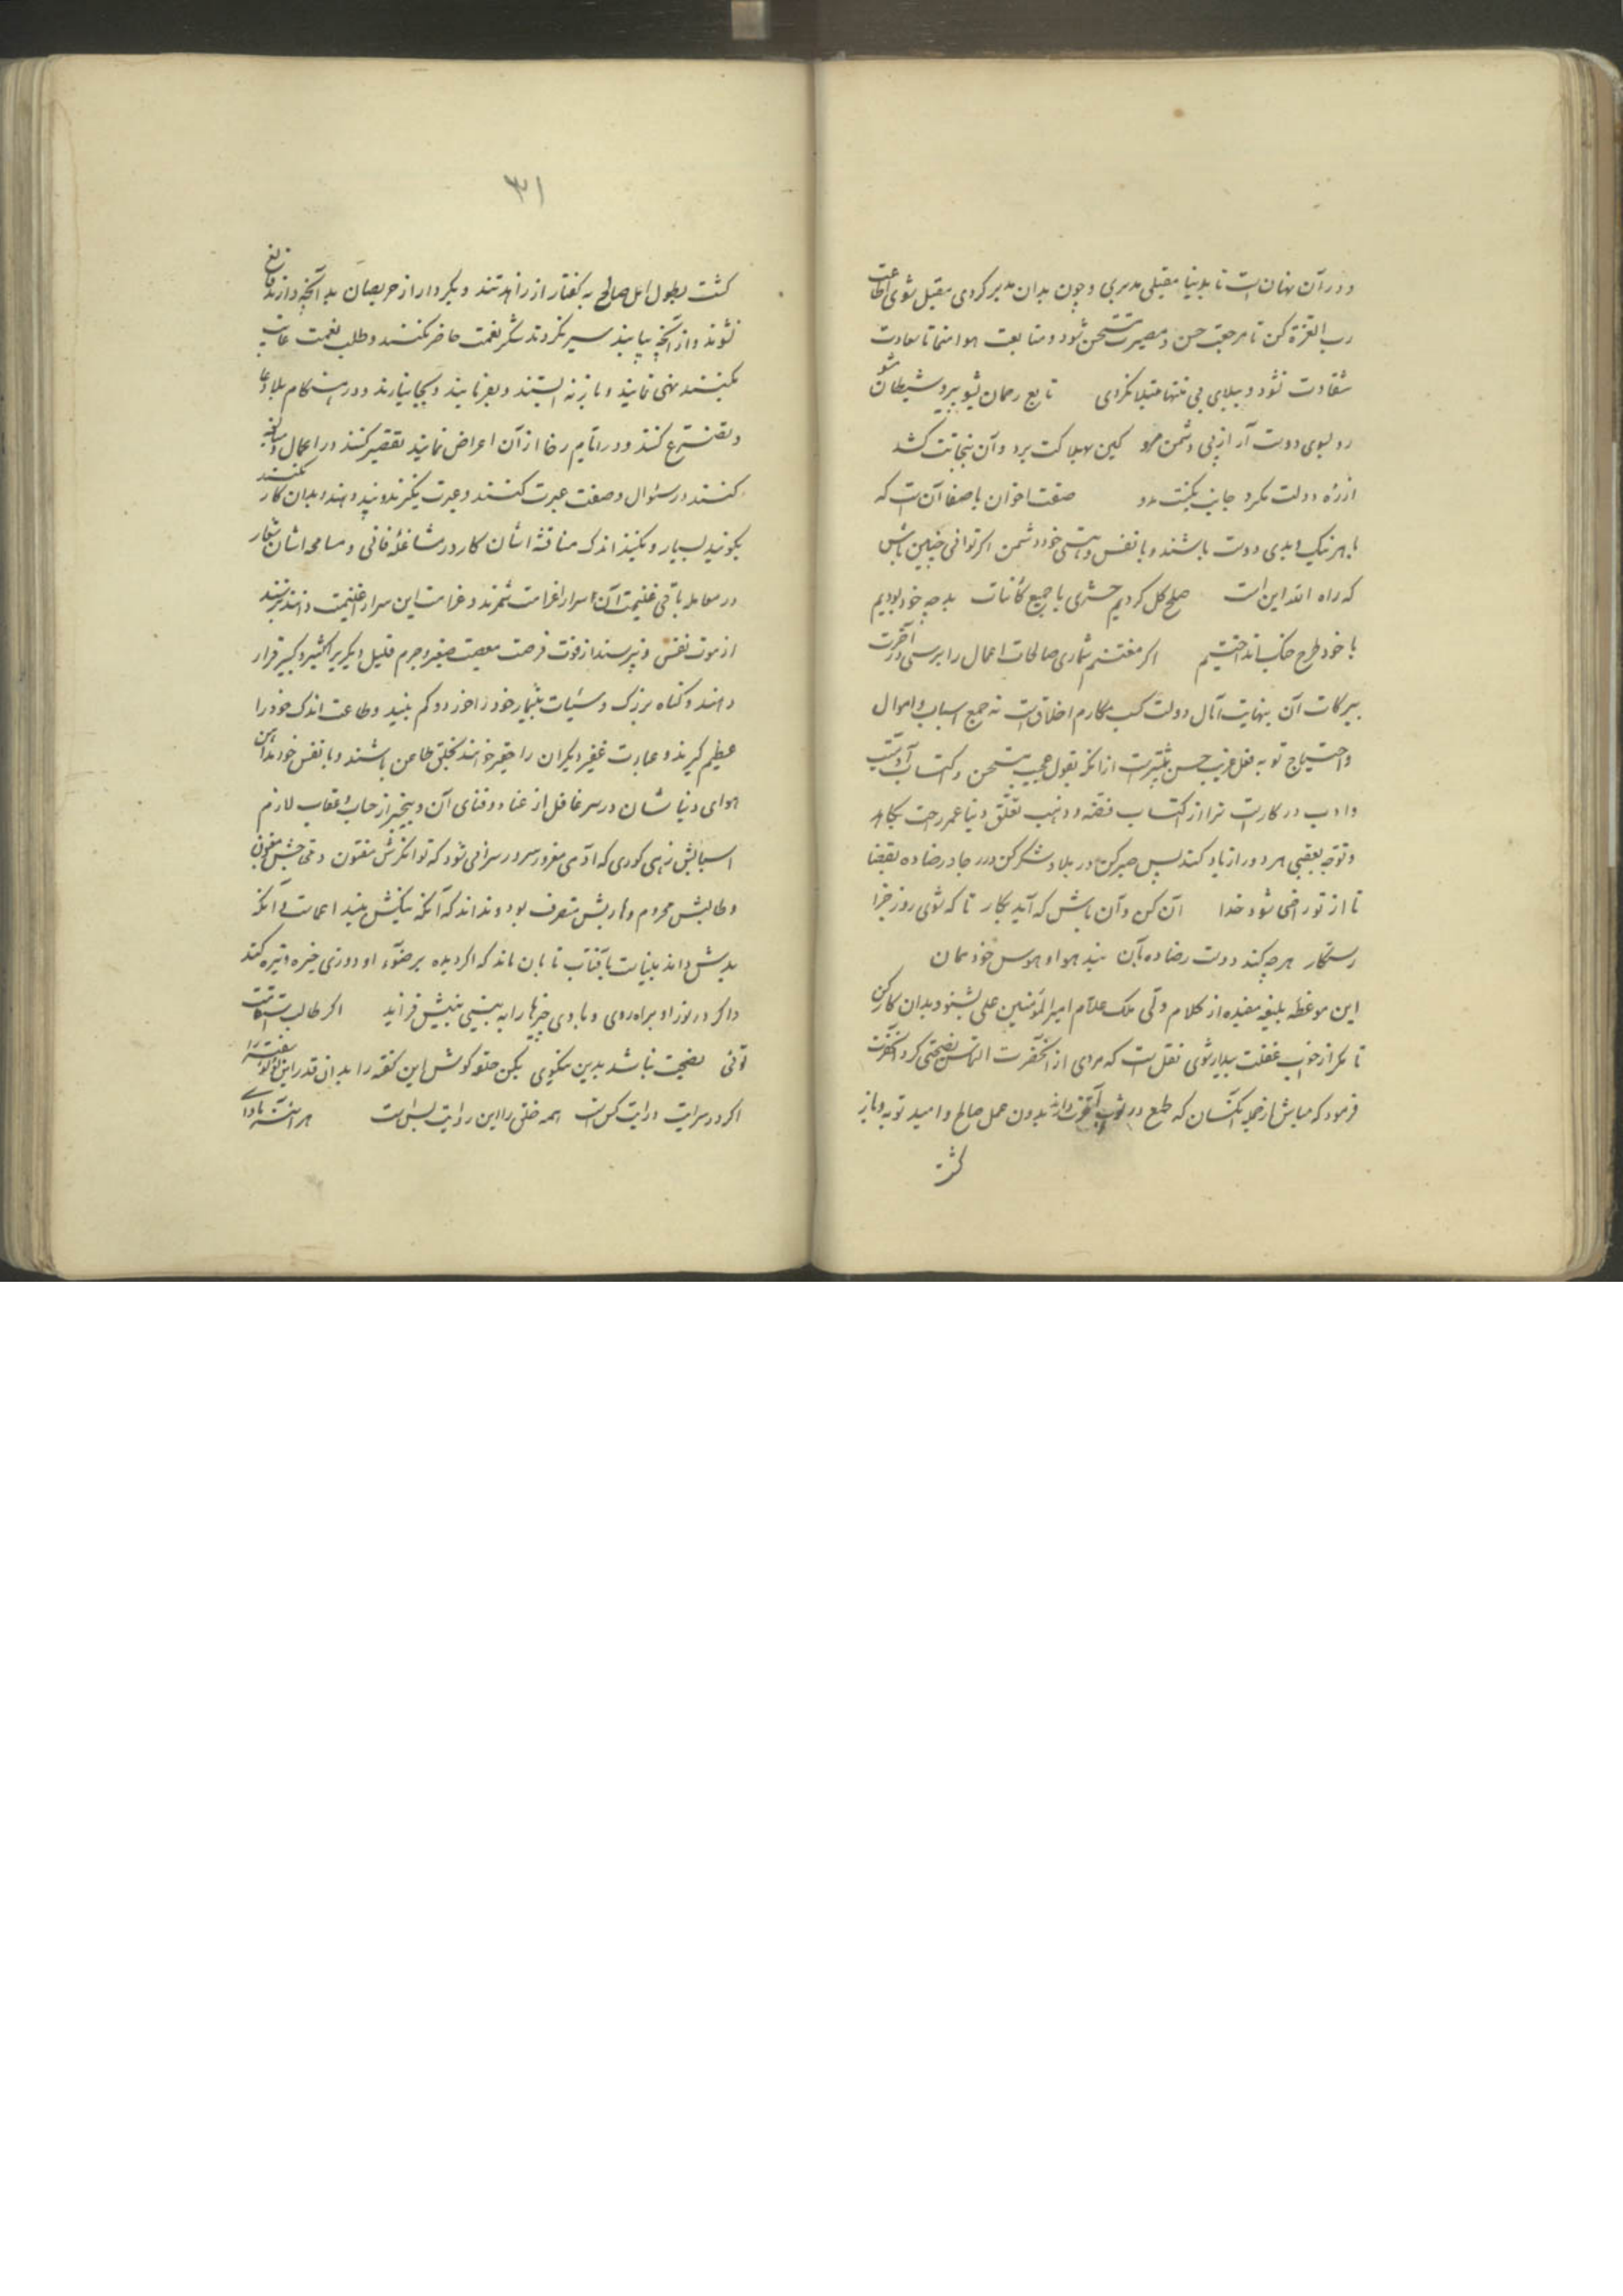 و در آن نهان است تا بدنیا مقبلی مدبری و چون بدان مدبر کردی مقبل شوی اطاعت
رب العزة کن تا مرجعت حسن و مصیرت مستحسن شود و متابعت هوا منما تا سعادت
شقاوت نشود و ببلای بی منتها مبتلا نکردی تابع رحمان شو پیرو شیطان مشو
رو بسوی دوست آر از پی دشمن مرو کین بهلاکت برد و آن بنجاتت کشد
از ره دولت مکرد جانب نکبت مدو صفت اخوان باصفا آن است که
با هر نیک و بدی دوست باشند و با نفس و هستی خود دشمن اکر توانی چنین باش
که راه الله این است صلح کل کردیم حشری با جمیع کائنات بد چه خود بودیم
با خود طرح جنک انداختیم اکر مغتنم شماری صالحات اعمال را برسی در آخرت
ببرکات آن بنهایت آمال دولت کسب مکارم اخلاق است نه جمع اسباب و اموال
و احتیاج تو به فعل غریب حسن بیشتر است از آنکه بقول عجیب مستحسن و اکتساب آدمیت
و ادب در کار است ترا از اکتساب فضه و ذهب تعلق دنیا عمر رحت بکاهد
و توجه بعقبی هر دو را زیاد کند پس صبر کن در بلا و شکر کن در رجا و رضا ده بقضا
تا از تو راضی شود خدا آن کن و آن باش که آید بکار تا که شوی روز جزا
رستکار هر چه کند دوست رضا ده بآن بند هوا و هوس خود بمان
این موعظه بلیغه مفیده از کلام ولی ملک علام امیر المؤمنین علی بشنو و بدان کار کن
تا مکر از خواب غفلت بیدار شوی نقل است که مردی از آنحضرت التماس نصیحتی کرد آنحضرت
فرمود که مباش از جمله آنکسان که طمع در ثواب آخرت دارند بدون عمل صالح و امید توبه و باز
کشت
۳۱
کشت بطول امل صالح به کفتار از زاهدتند و بکردار از حریصان بد آنچه دارند قانع
نشوند و از آنچه بیابند سیر نکردند شکر نعمت حاضر نکنند و طلب نعمت غایب
بکنند نهی نمایند و باز نه ایستند و بفرمایند و بجا نیارند و در هنکام بلا دعا
و تضرع کنند و در ایام رخا از آن اعراض نمایند تقصیر کنند در اعمال و مبالغه
کنند در سؤال و صفت عبرت کنند و عبرت نکیرند و پند دهند و بدان کار نکنند
بکویند بسیار و بکنند اندک مناقشه ایشان کار در مشاغله فانی و مسامحه ایشان شعار
در معامله باقی غنیمت آن سرا را غرامت شمرند و غرامت این سرا را غنیمت دانند بترسند
از موت نفس و نپرسند از فوت فرصت معصیت صغیر و جرم قلیل دیکریرا کثیر و کبیر قرار
دهند و کناه بزرک و سئیات بیشمار خود را خرد و کم بینند و طاعت اندک خود را
عظیم کیرند و عبادت غفیر دیکران را حقیر خوانند بخلق طاعن باشند و با نفس خود مداهن
هوای دنیا شان در سر غافل از عناء و فنای آن و بیخبر از حساب و عقاب لازم
اسبابش زهی کوری که آدمی مغرور سر در سرائی شود که توانکرش مفتون و محبش مغبون
و طالبش محروم و حاربش متصرف بود و نداند که آنکه نیکش بیند اعمی است و آنکه
بدش داند بیناست بآفتاب تابان ماند که اکر دیده بر ضوء او دوزی خیره و تیره کند
و اکر در نور او براه روی و بادی چیزها را به بینی بینش فزاید اکر طالب استقامت
توئی نصیحت نباشد بدین نیکوی بکن حلقه کوش این کفته را بدان قدر این لؤلؤ سفته را
اکر در سرایت درایت کس است همه خلق را این روایت بس است هر آینه